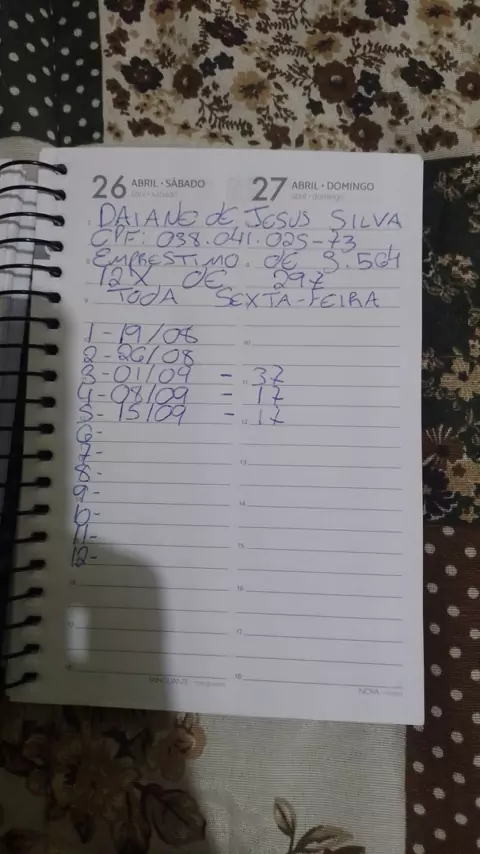 26 ABRIL • SÁBADO
27 ABRIL • DOMINGO
abril • domingo
DAIANO DE JESUS SILVA
CPF: 038.041.025-73
EMPRESTIMO DE 3.564
12 X DE 297
TODA SEXTA-FEIRA
1 - 19/08
2 - 26/08
3 - 01/09 - 37
4 - 08/09 - 17
5 - 15/09 - 17
6 -
7 -
8 -
9 -
10 -
11 -
12 -
MINGUANTE
NOVA